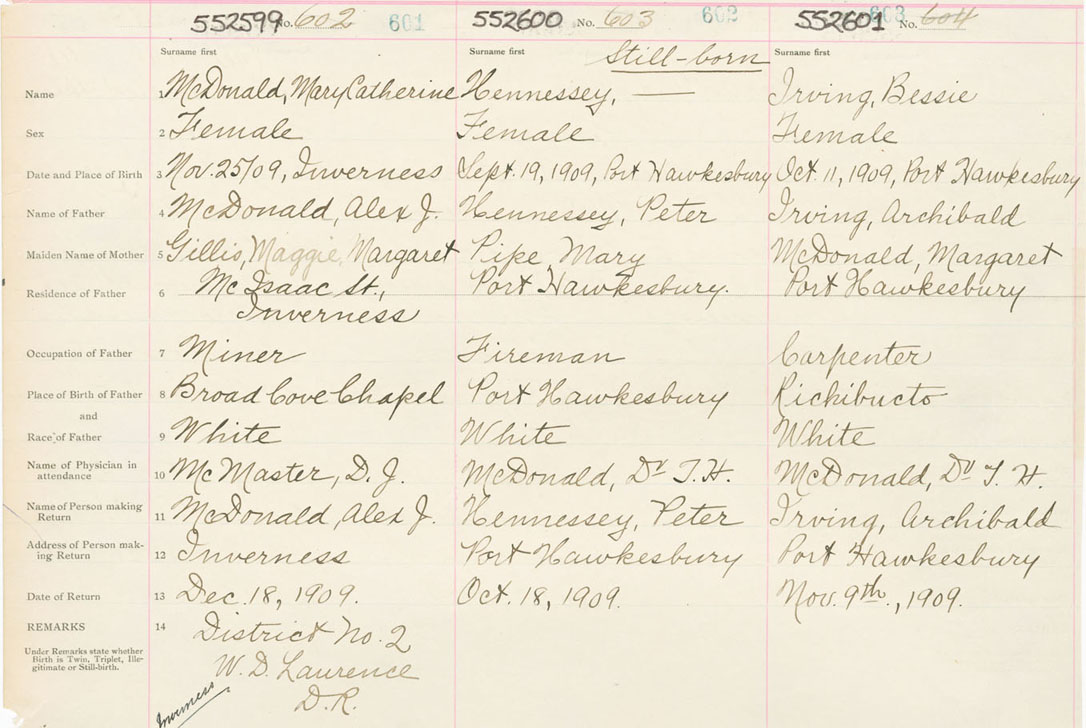 552599 No. 602 601 552600 No. 603 602 552601 603 No. 604
Surname first Surname first Still-born Surname first
Name 1 McDonald, Mary Catherine Hennessey, — Irving, Bessie
Sex 2 Female Female Female
Date and Place of Birth 3 Nov. 25/09, Inverness Sept. 19, 1909, Port Hawkesbury Oct. 11, 1909, Port Hawkesbury
Name of Father 4 McDonald, Alex J. Hennessey, Peter Irving, Archibald
Maiden Name of Mother 5 Gillis, Maggie, Margaret Pipe Mary McDonald, Margaret
Residence of Father 6 McIsaac St., Port Hawkesbury. Port Hawkesbury
Inverness
Occupation of Father 7 Miner Fireman Carpenter
Place of Birth of Father 8 Broad Cove Chapel Port Hawkesbury Richibucto
and
Race of Father 9 White White White
Name of Physician in
attendance 10 McMaster, D. J. McDonald, Dr T. H. McDonald, Dr T. H.
Name of Person making
Return 11 McDonald, Alex J. Hennessey, Peter Irving, Archibald
Address of Person mak-
ing Return 12 Inverness Port Hawkesbury Port Hawkesbury
Date of Return 13 Dec. 18, 1909. Oct. 18, 1909. Nov. 9th., 1909.
REMARKS 14 District No. 2
Under Remarks state whether
Birth is Twin, Triplet, Ille-
gitimate or Still-birth.
W. D. Laurence
D.R.
Inverness